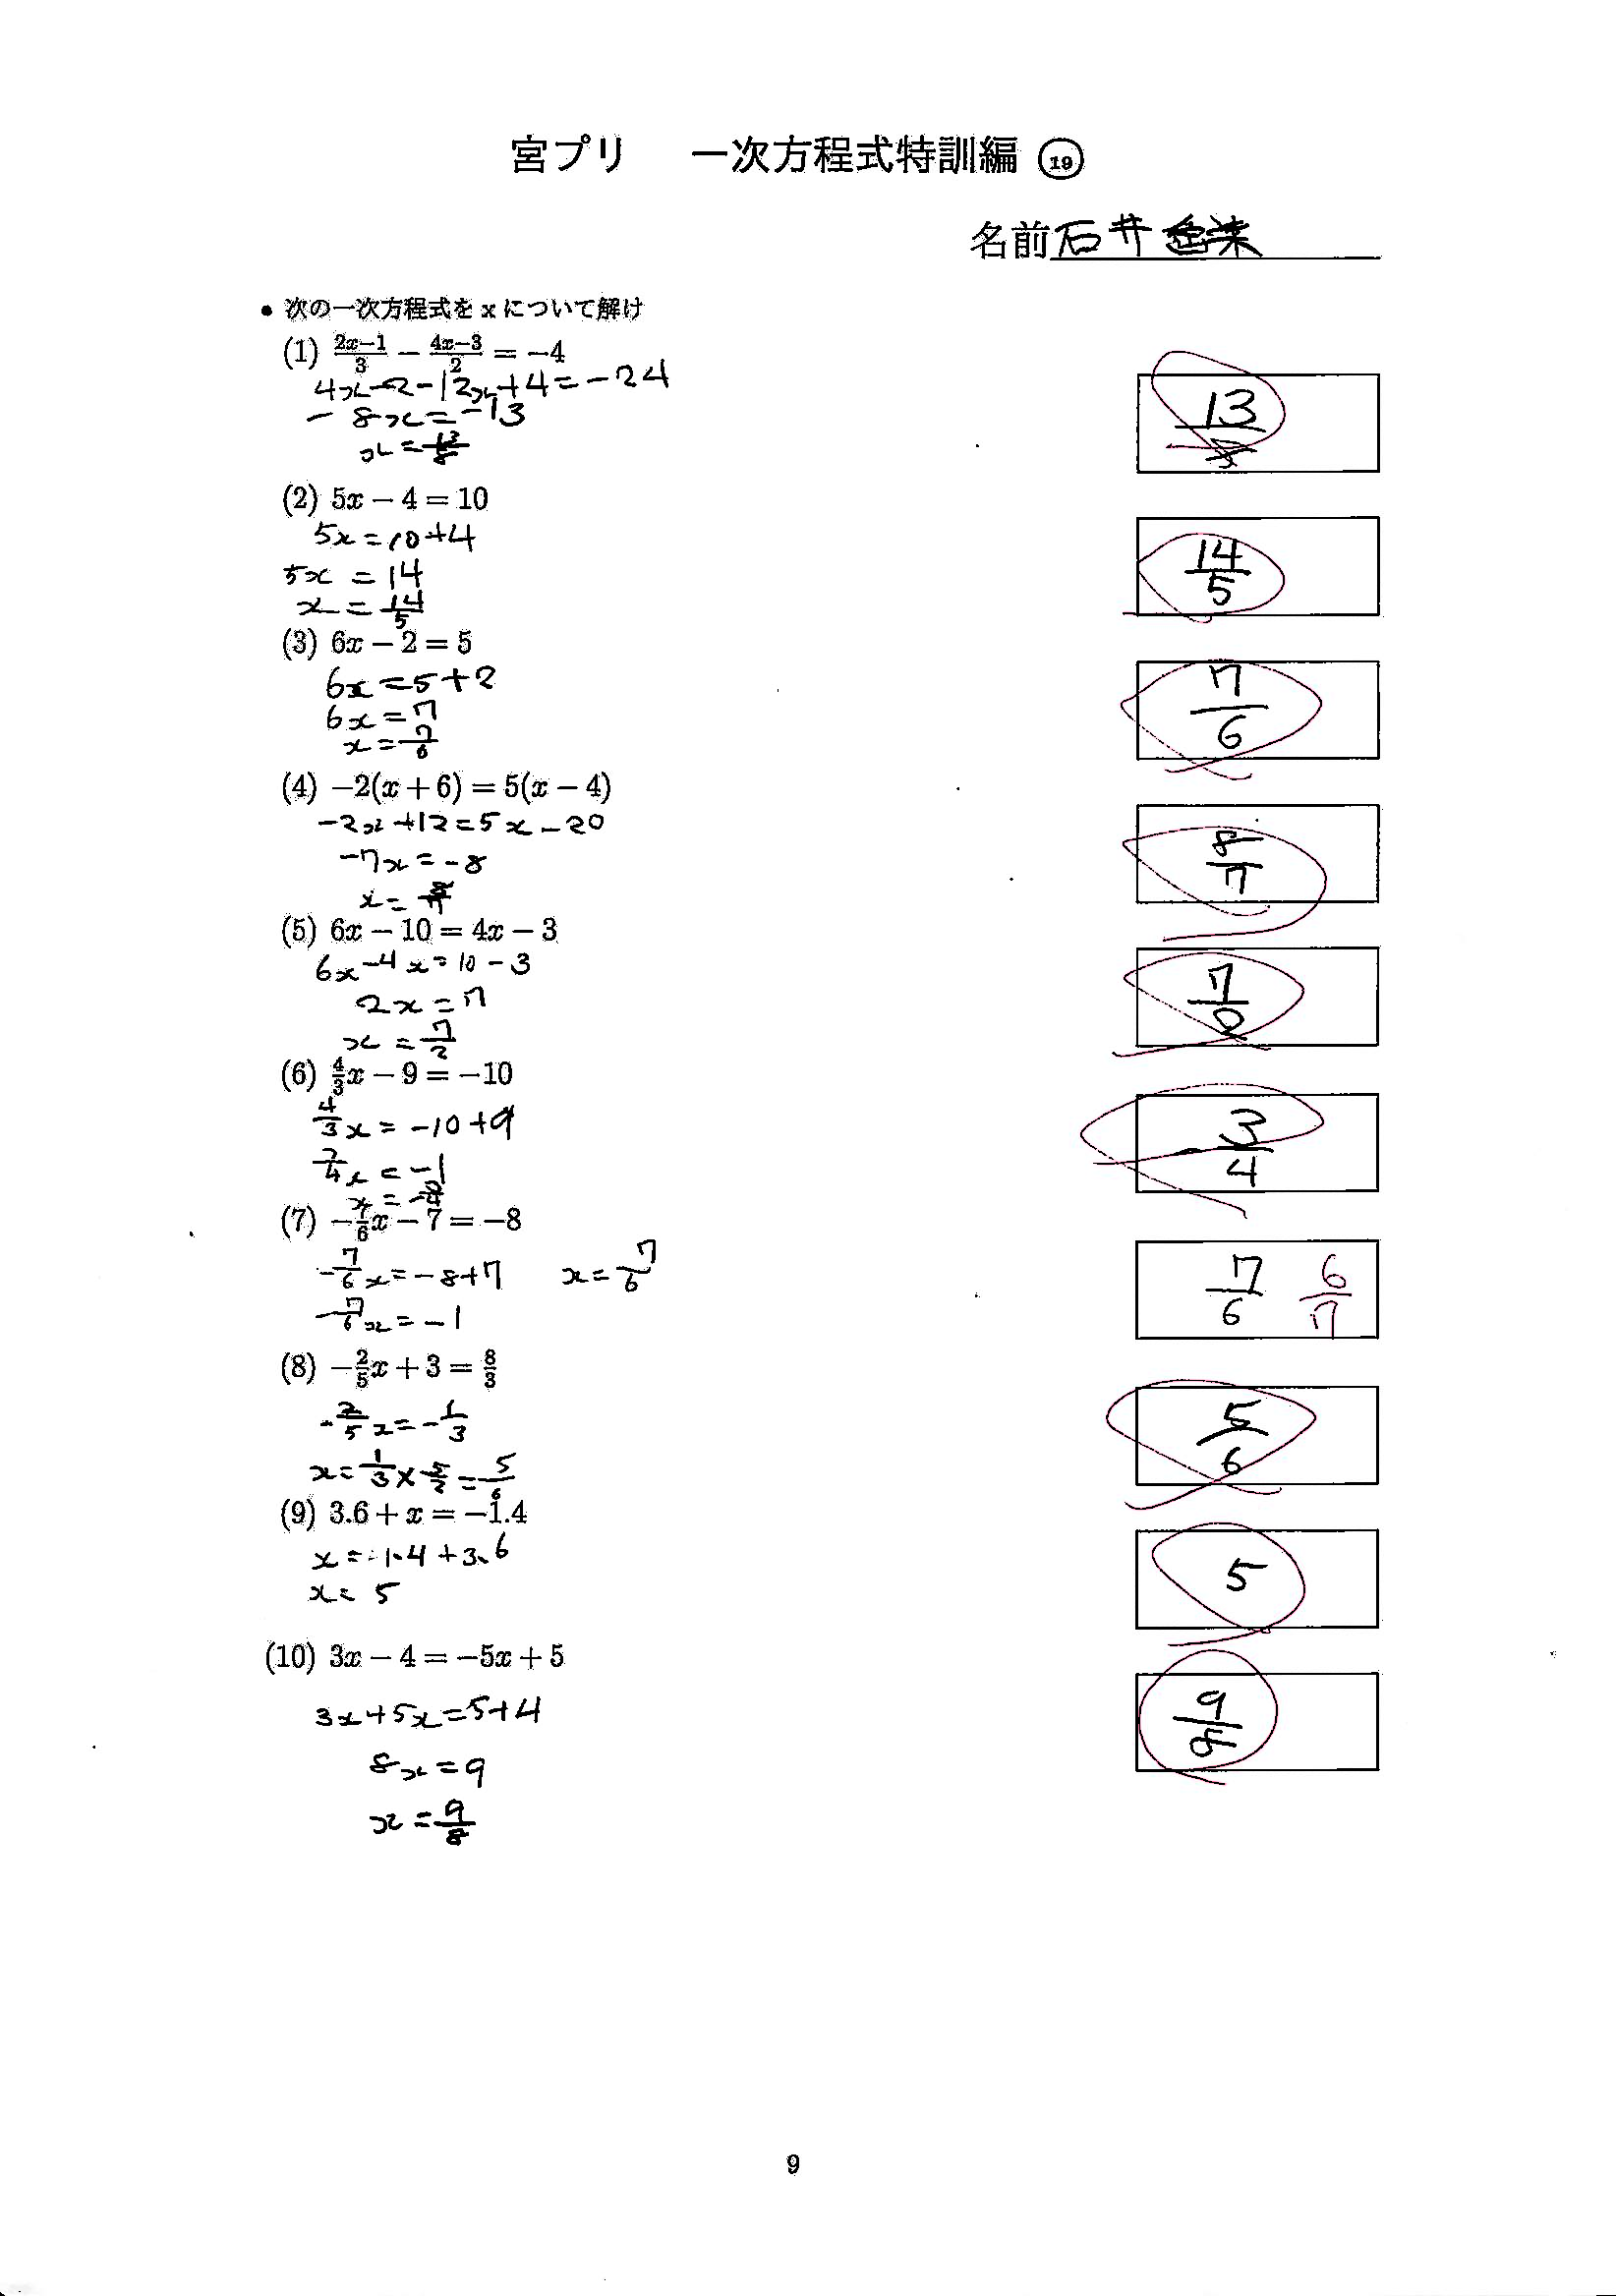 宮プリ 一次方程式特訓編 ⑲
名前 石井
• 次の一次方程式を x について解け
(1) \frac{2x-1}{3} - \frac{4x-3}{2} = -4
4x-2-12x+4=-24
-8x=-13
x=\frac{13}{8}
\frac{13}{8}
(2) 5x - 4 = 10
5x=10+4
5x=14
x=\frac{14}{5}
\frac{14}{5}
(3) 6x - 2 = 5
6x=5+2
6x=7
x=\frac{7}{6}
\frac{7}{6}
(4) -2(x + 6) = 5(x - 4)
-2x+12=5x-20
-7x=-8
x=\frac{8}{7}
\frac{8}{7}
(5) 6x - 10 = 4x - 3
6x-4x=10-3
2x=7
x=\frac{7}{2}
\frac{7}{2}
(6) \frac{4}{3}x - 9 = -10
\frac{4}{3}x=-10+9
\frac{3}{4}x=-1
x=-\frac{3}{4}
-\frac{3}{4}
(7) -\frac{7}{6}x - 7 = -8
-\frac{7}{6}x=-8+7 x=\frac{7}{6}
-\frac{7}{6}x=-1
\frac{7}{6} \frac{6}{7}
(8) -\frac{2}{5}x + 3 = \frac{8}{3}
-\frac{2}{5}x=-\frac{1}{3}
x=\frac{1}{3}×\frac{5}{2}=\frac{5}{6}
\frac{5}{6}
(9) 3.6 + x = -1.4
x=-1.4+3.6
x=5
5
(10) 3x - 4 = -5x + 5
3x+5x=5+4
8x=9
x=\frac{9}{8}
\frac{9}{8}
9